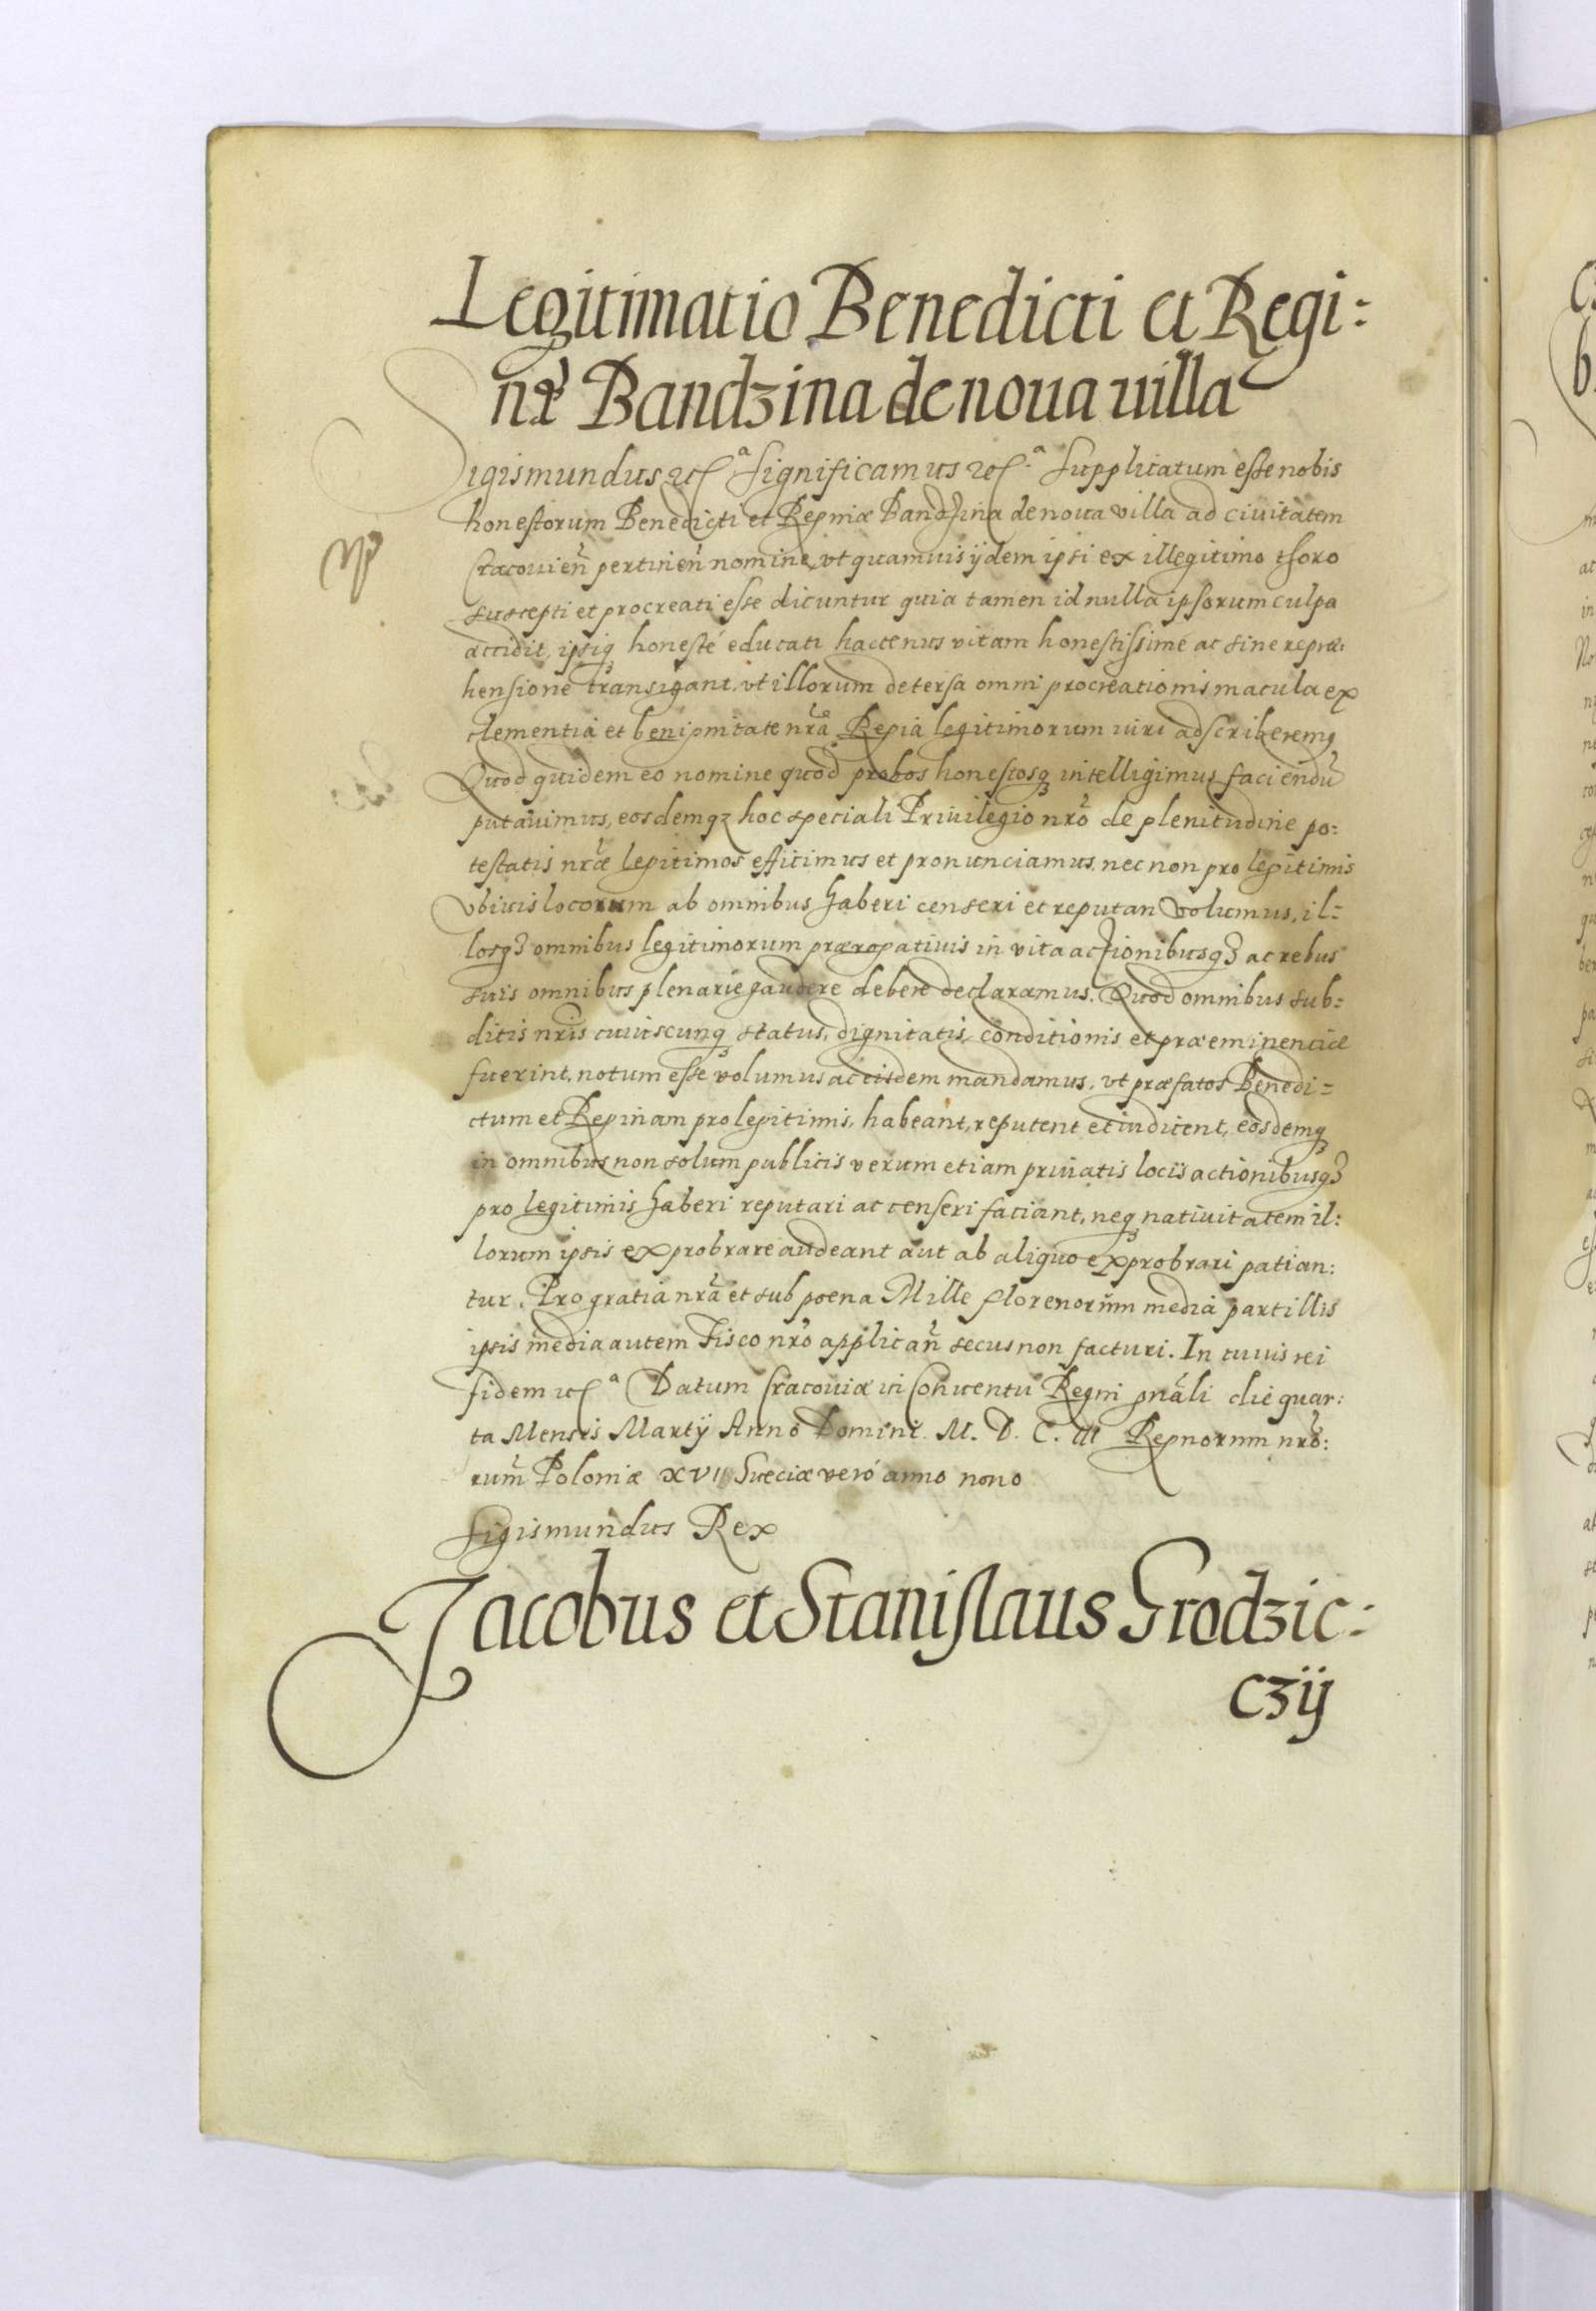 Legitimatio Benedicti et Regi:
næ Bandzina de noua uilla
Sigismundus etc̃a Significamus etc̃a Supplicatum esse nobis
honestorum Benedicti et Reginæ Bandzina de noua villa ad ciuitatem
Cracouien̄ pertinen̄ nomine, vt quamuis ijdem ipsi ex illegitimo thoro
suscepti et procreati esse dicuntur quia tamen id nulla ipsorum culpa
accidit, ipsiq3 honesté educati hactenus vitam honestissime ac sine repræ:
hensione transigant, vt illorum detersa omni procreationis macula ex
clementia et benignitate nr̃a Regia legitimorum iuri adscriberemq
Quod quidem eo nomine quod probos honestosq3 intelligimus faciendū
putauimus, eosdemq3 hoc speciali Priuilegio nrõ de plenitudine po:
testatis nr̃æ legitimos efficimus et pronunciamus, nec non pro legitimis
vbiuis locorum ab omnibus haberi censeri et reputari volumus, il:
losq3 omnibus legitimorum prærogatiuis in vita actionibusq3 ac rebus
suis omnibus plenarie gaudere debere declaramus. Quod omnibus sub:
ditis nr̃is cuiuscunq3 status, dignitatis, conditionis et præeminenciæ
fuerint, notum esse volumus ac eisdem mandamus, vt præfatos Benedi:
ctum et Reginam pro legitimis, habeant, reputent et iudicent, eosdemq3
in omnibus non solum publicis verum etiam priuatis locis actionibusq3
pro legitimis haberi reputari ac censeri faciant, neq3 natiuitatem il:
lorum ipsis exprobrare audeant aut ab aliquo exprobrari patian:
tur. Pro gratia nr̃a et sub poena Mille florenorum media part illis
ipsis media autem Fisco nrõ applican̄ secus non facturi. In cuius rei
fidem etc̃a Datum Cracouiæ in Conuentu Regni gnãli die quar:
ta Mensis Martij Anno Domini. M. D. C. III Regnorum nrõ:
rum̃ Poloniæ XVI Sueciæ veró anno nono
Sigismundus Rex
Jacobus et Stanislaus Grodzic:
czij